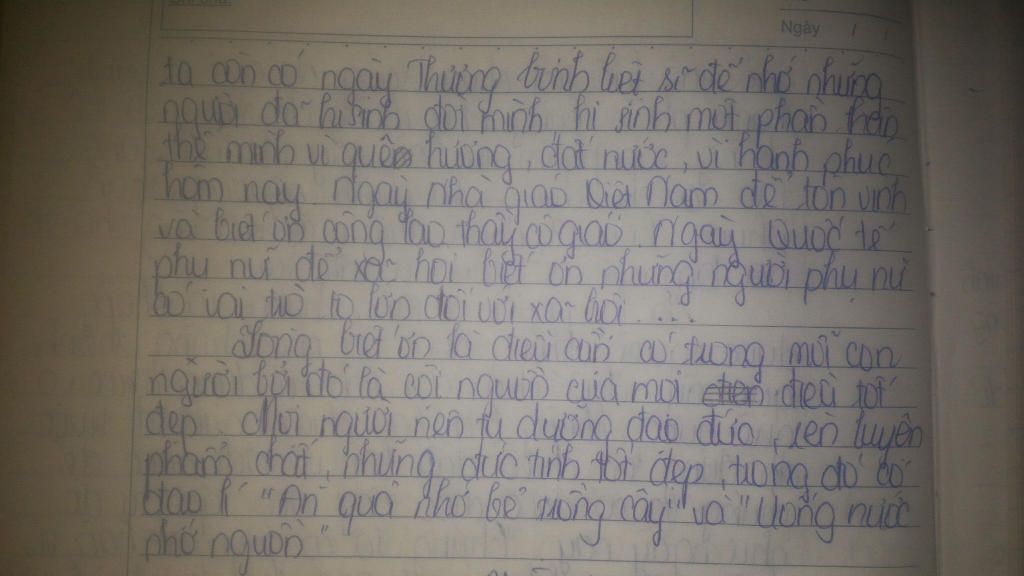 Ngày / /
ta còn có ngày Thương binh liệt sĩ để nhớ những
người đã hi sinh đời mình hi sinh một phần thân
thể mình vì quên hương, đất nước, vì hạnh phúc
hôm nay. Ngày nhà giáo Việt Nam để tôn vinh
và biết ơn công lao thầy cô giáo. Ngày Quốc tế
phụ nữ để xã hội biết ơn những người phụ nữ
có vai trò to lớn đối với xã hội ...
Lòng biết ơn là điều cần có trong mỗi con
người bởi đó là cội nguồn của mọi điều tốt
đẹp. Mọi người nên tu dưỡng đạo đức, rèn luyện
phẩm chất, những đức tính tốt đẹp, trong đó có
đạo lí "Ăn quả nhớ kẻ trồng cây" và "Uống nước
nhớ nguồn"